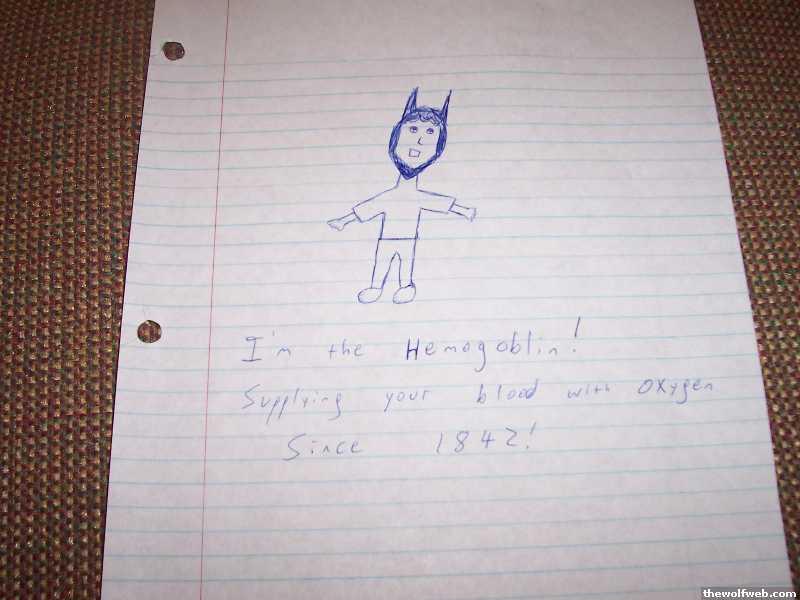 I'm the Hemogoblin!
Supplying your blood with oxygen
Since 1842!
thewolfweb.com